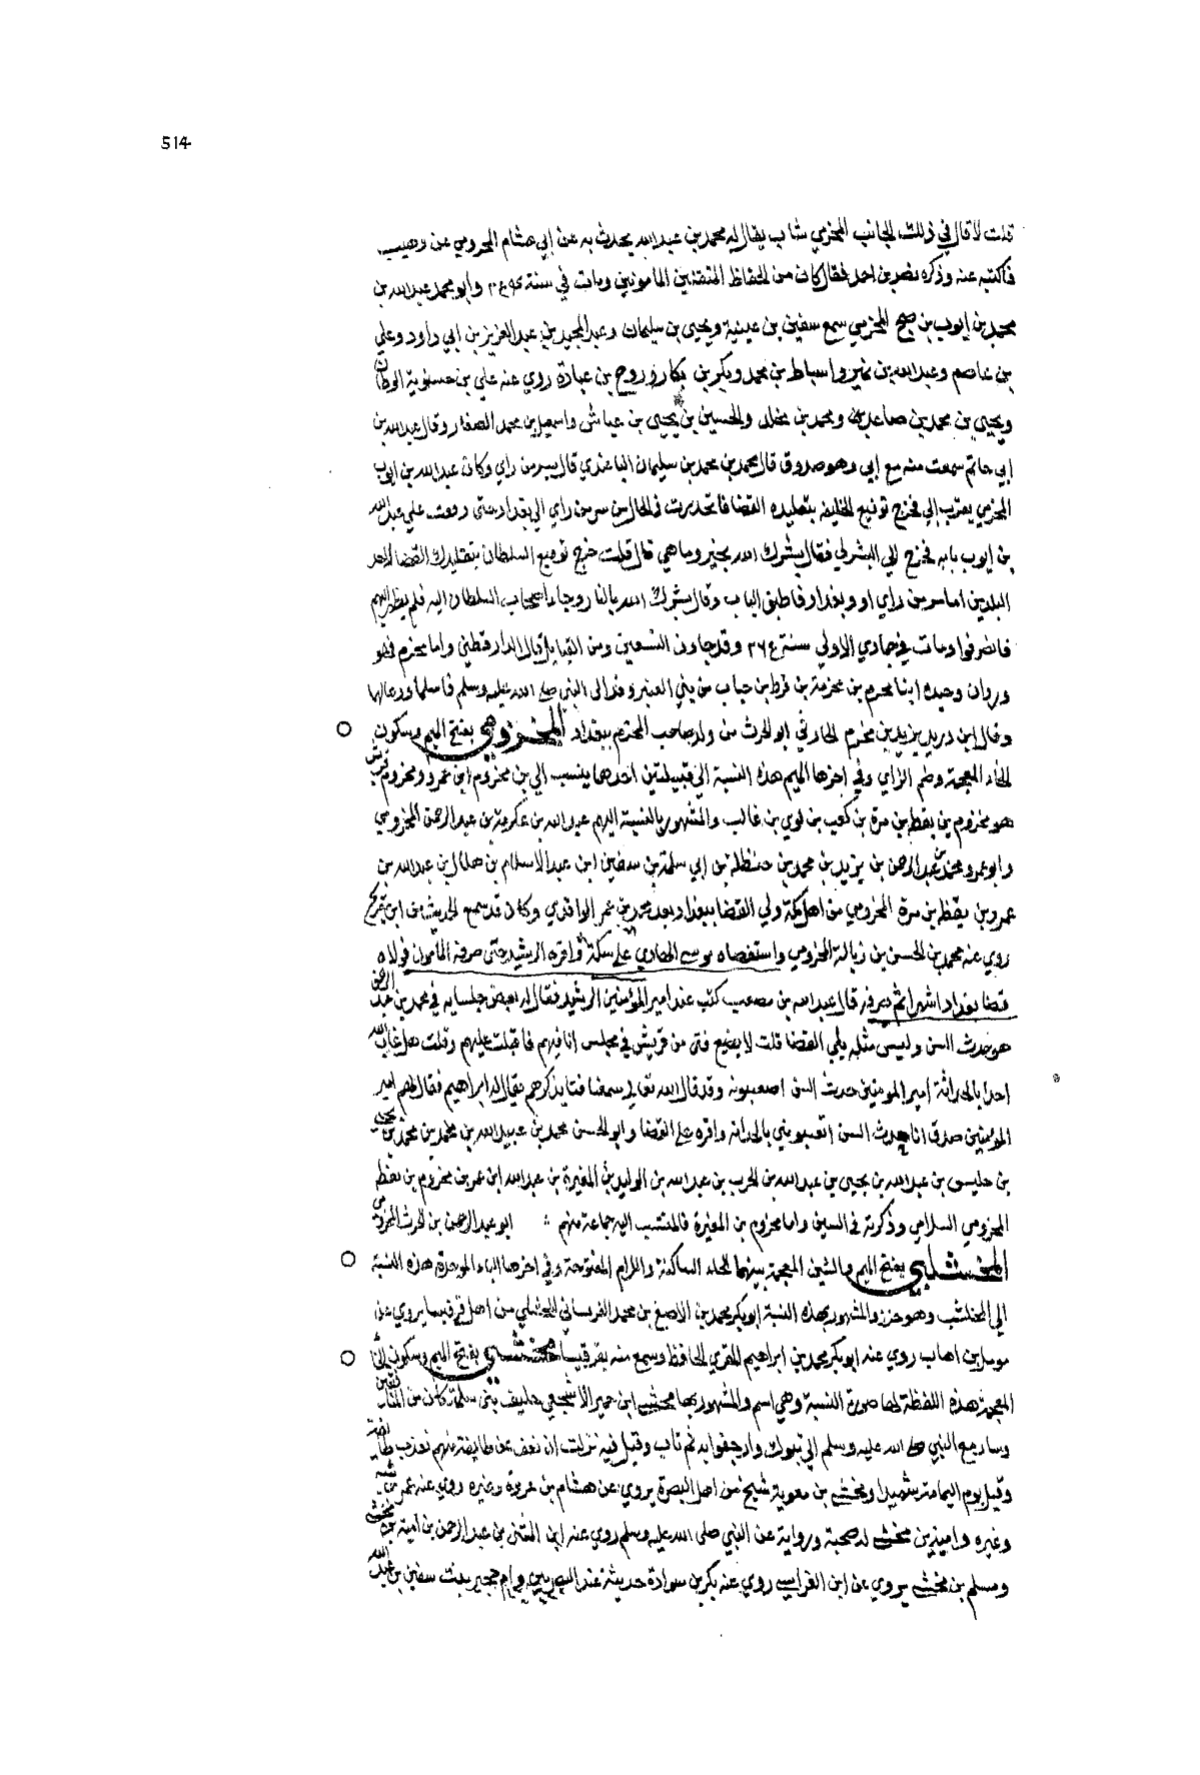 514
قلت لا قال في ذلك الجانب المخرمي شاب يقال له محمد بن عبد الله يحدث به عن ابي هشام المخزومي عن وهيب
فاكتبه عنه وذكره نصر بن احمد فقال كان من الحفاظ المتقنين المامونين ومات في سنة وابو محمد عبد الله بن
محمد بن ايوب بن صبيح المخرمي سمع سفين بن عيينة ويحيى بن سليمان وعبد المجيد بن عبد العزيز بن ابي داود وعلي
بن عاصم وعبد الله بن نمير واسباط بن محمد وبكر بن بكار وروح بن عبادة روي عنه علي بن حسنوية القطان
ويحيى بن محمد بن صاعد ومحمد بن مخلد والحسين بن يحيى بن عياش واسمعيل بن محمد الصفار وقال عبد الله بن
ابي حاتم سمعت منه مع ابي وهو صدوق قال محمد بن محمد بن سليمان الباغندي قال بسر من راي وكان عبد الله بن ايوب
المخرمي يقرب الي فخرج توقيع الخليفة بتقليده القضا فانحدرت في الحال من سر من راي الى بغداد حتى دققت علي عبد الله
بن ايوب بابه فخرج الي البشري فقال بشرك الله بخير وما هي قال قلت خرج توقيع السلطان بتقليدك القضا لاحد
البلدين اما سر من راي او بغداد فاطبق الباب وقال بشرك الله بالنار وجا اصحاب السلطان اليه فلم يظهر اليهم
فانصرفوا ومات في جمادي الاولي سنة وقد جاوز التسعين ومن القبايل قال الدارقطني واما مخرم فهو
وردان وحيدة ابنا مخرم بن مخرمة بن قرط بن جناب من بني العنبر وفدا الى النبي صلى الله عليه وسلم فاسلما ودعا لهما
وقال ابن دريد يزيد بن مخرم الحارثي ابو الحرث من ولده صاحب المخرم ببغداد المخزومي بفتح الميم وسكون
الخاء المعجمة وضم الزاي وفي اخرها الميم هذه النسبة الى قبيلتين احدهما ينسب الي بن مخزوم ابن عمرو ومخزوم قريش
هو مخزوم بن يقظة بن مرة بن كعب بن لوي بن غالب والمشهور بالنسبة اليهم عبد الله بن عكرمة بن عبد الرحمن المخزومي
وابو عمرو محمد بن عبد الرحمن بن يزيد بن محمد بن حنظلة بن ابي سلمة بن سفين ابن عبد الاسلام بن هلال بن عبد الله بن
عمرو بن يقظة بن مرة المخزومي من اهل مكة ولي القضا ببغداد بعد محمد بن عمر الواقدي وكان قد سمع الحديث من ابن جريج
روي عنه محمد بن الحسن بن زبالة المخزومي واستقضاه موسى الهادي علي مكة واقره الرشيد حتى صرفه المامون فولاه
قضا بغداد اشهرا ثم صرفه قال عبد الله بن مصعب كنت عند امير المؤمنين الرشيد فقال له بعض جلسايه في محمد بن عبد الرحمن
هو حدث السن وليس مثله يلي القضا قلت لا يضيع فتى من قريش في مجلس انا فيهم فاقبلت عليهم وقلت هل عاب الله
احدا بالحداثة امير المومنين حدث السن اتعيبونه وقد قال الله تعالي سمعنا فتا يذكرهم يقال له ابراهيم فقال لهم امير
المؤمنين صدق انا حدث السن اتعيبوني بالحداثة واقره علي القضا وابو الحسن محمد بن عبيد الله بن محمد بن محمد بن يحيى
بن حليس بن عبد الله بن يحيى بن عبد الله بن الحرب بن عبد الله بن الوليد بن المغيرة بن عبد الله ابن عمر بن مخزوم بن يقظة
المخزومي السلامي وذكرته في السين واما مخزوم بن المغيرة فالمنتسب اليه جماعة منهم ابو عبد الرحمن بن الحرث المخزومي
المخشلبي بفتح الميم والشين المعجمة بينهما الخاء الساكنة واللام المفتوحة وفي اخرها الباء الموحدة هذه النسبة
الي المخشلب وهو خرز والمشهور بهذه النسبة ابو بكر محمد بن الاصبغ بن محمد القرقساني المخشلبي من اهل قرقيسا يروي عن
موسل بن اهاب روي عنه ابو بكر محمد بن ابراهيم المقري الحافظ وسمع منه بقرقيسيا مخشي بفتح الميم وسكون الخا
المعجمة هذه اللفظة لها صورة النسبة وهي اسم والمشهور بها مخشي ابن حمير الاشجعي حليف بنى سلمة كان من المنافقين
وسار مع النبي صلى الله عليه وسلم الي تبوك وارجفوا به ثم تاب وقيل فيه نزلت ان نعف عن طايفة منهم نعذب طايفة
وقتل يوم اليمامة شهيدا ومخشي بن معوية شيخ من اهل البصرة يروي عن هشام بن عروة وغيره روي عنه عمر بن شبة
وغيره وامية بن مخشي له صحبة ورواية عن النبي صلى الله عليه وسلم روي عنه ابن المثنى بن عبد الرحمن بن امية بن مخشي
ومسلم بن مخشي يروي عن ابن الفراسي روي عنه بكر بن سوادة حديثه عند المصريين وام حجير بنت سفين بن عبد الله